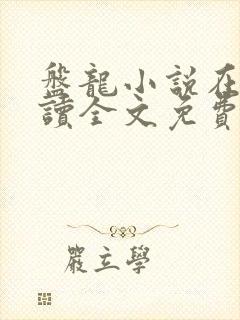 盤龍小説在
讀全文免費
嚴立學